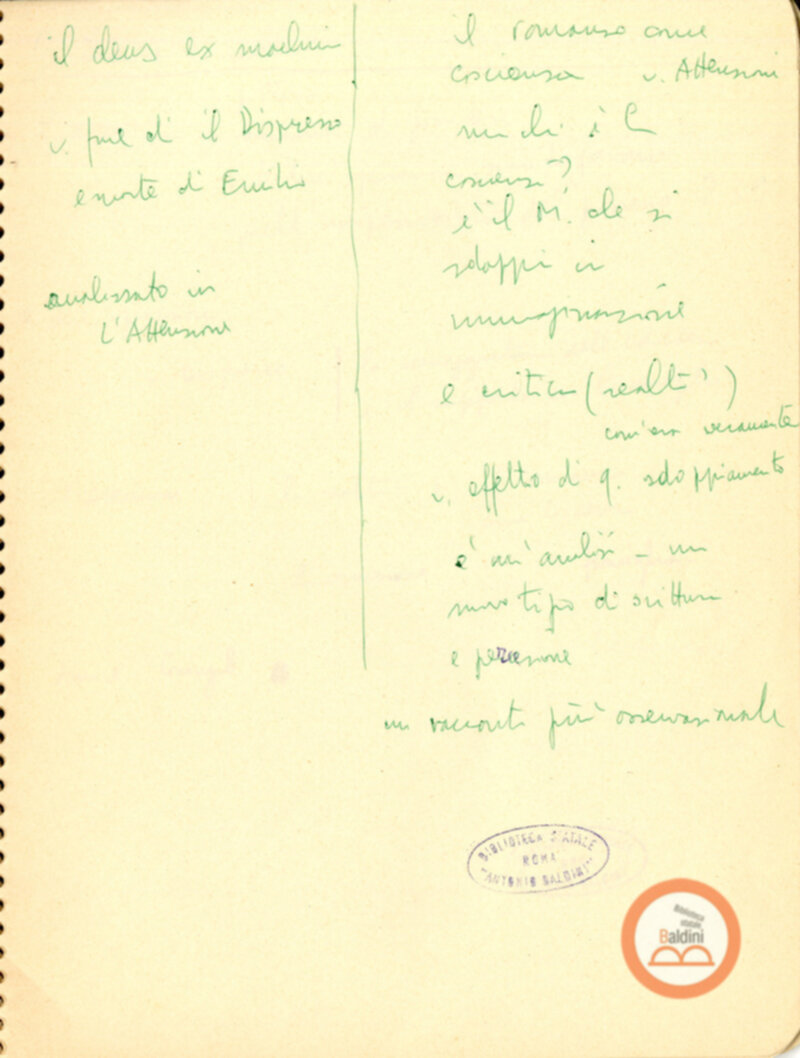 il deus ex machina
v. fine di il Disprezzo
e morte di Emilio
analizzato in
L'Attenzione
il romanzo come
coscienza v. Attenzione
ma chi è la
coscienza?
è il M. che si
sdoppi in
immaginazione
e critica (realtà)
com'era veramente
v. effetto di q. sdoppiamento
è un'analisi - un
nuovo tipo di scrittura
e percezione
un racconto più osservazionale
BIBLIOTECA STATALE
ROMA
"ANTONIO BALDINI"
Biblioteca
statale
Baldini